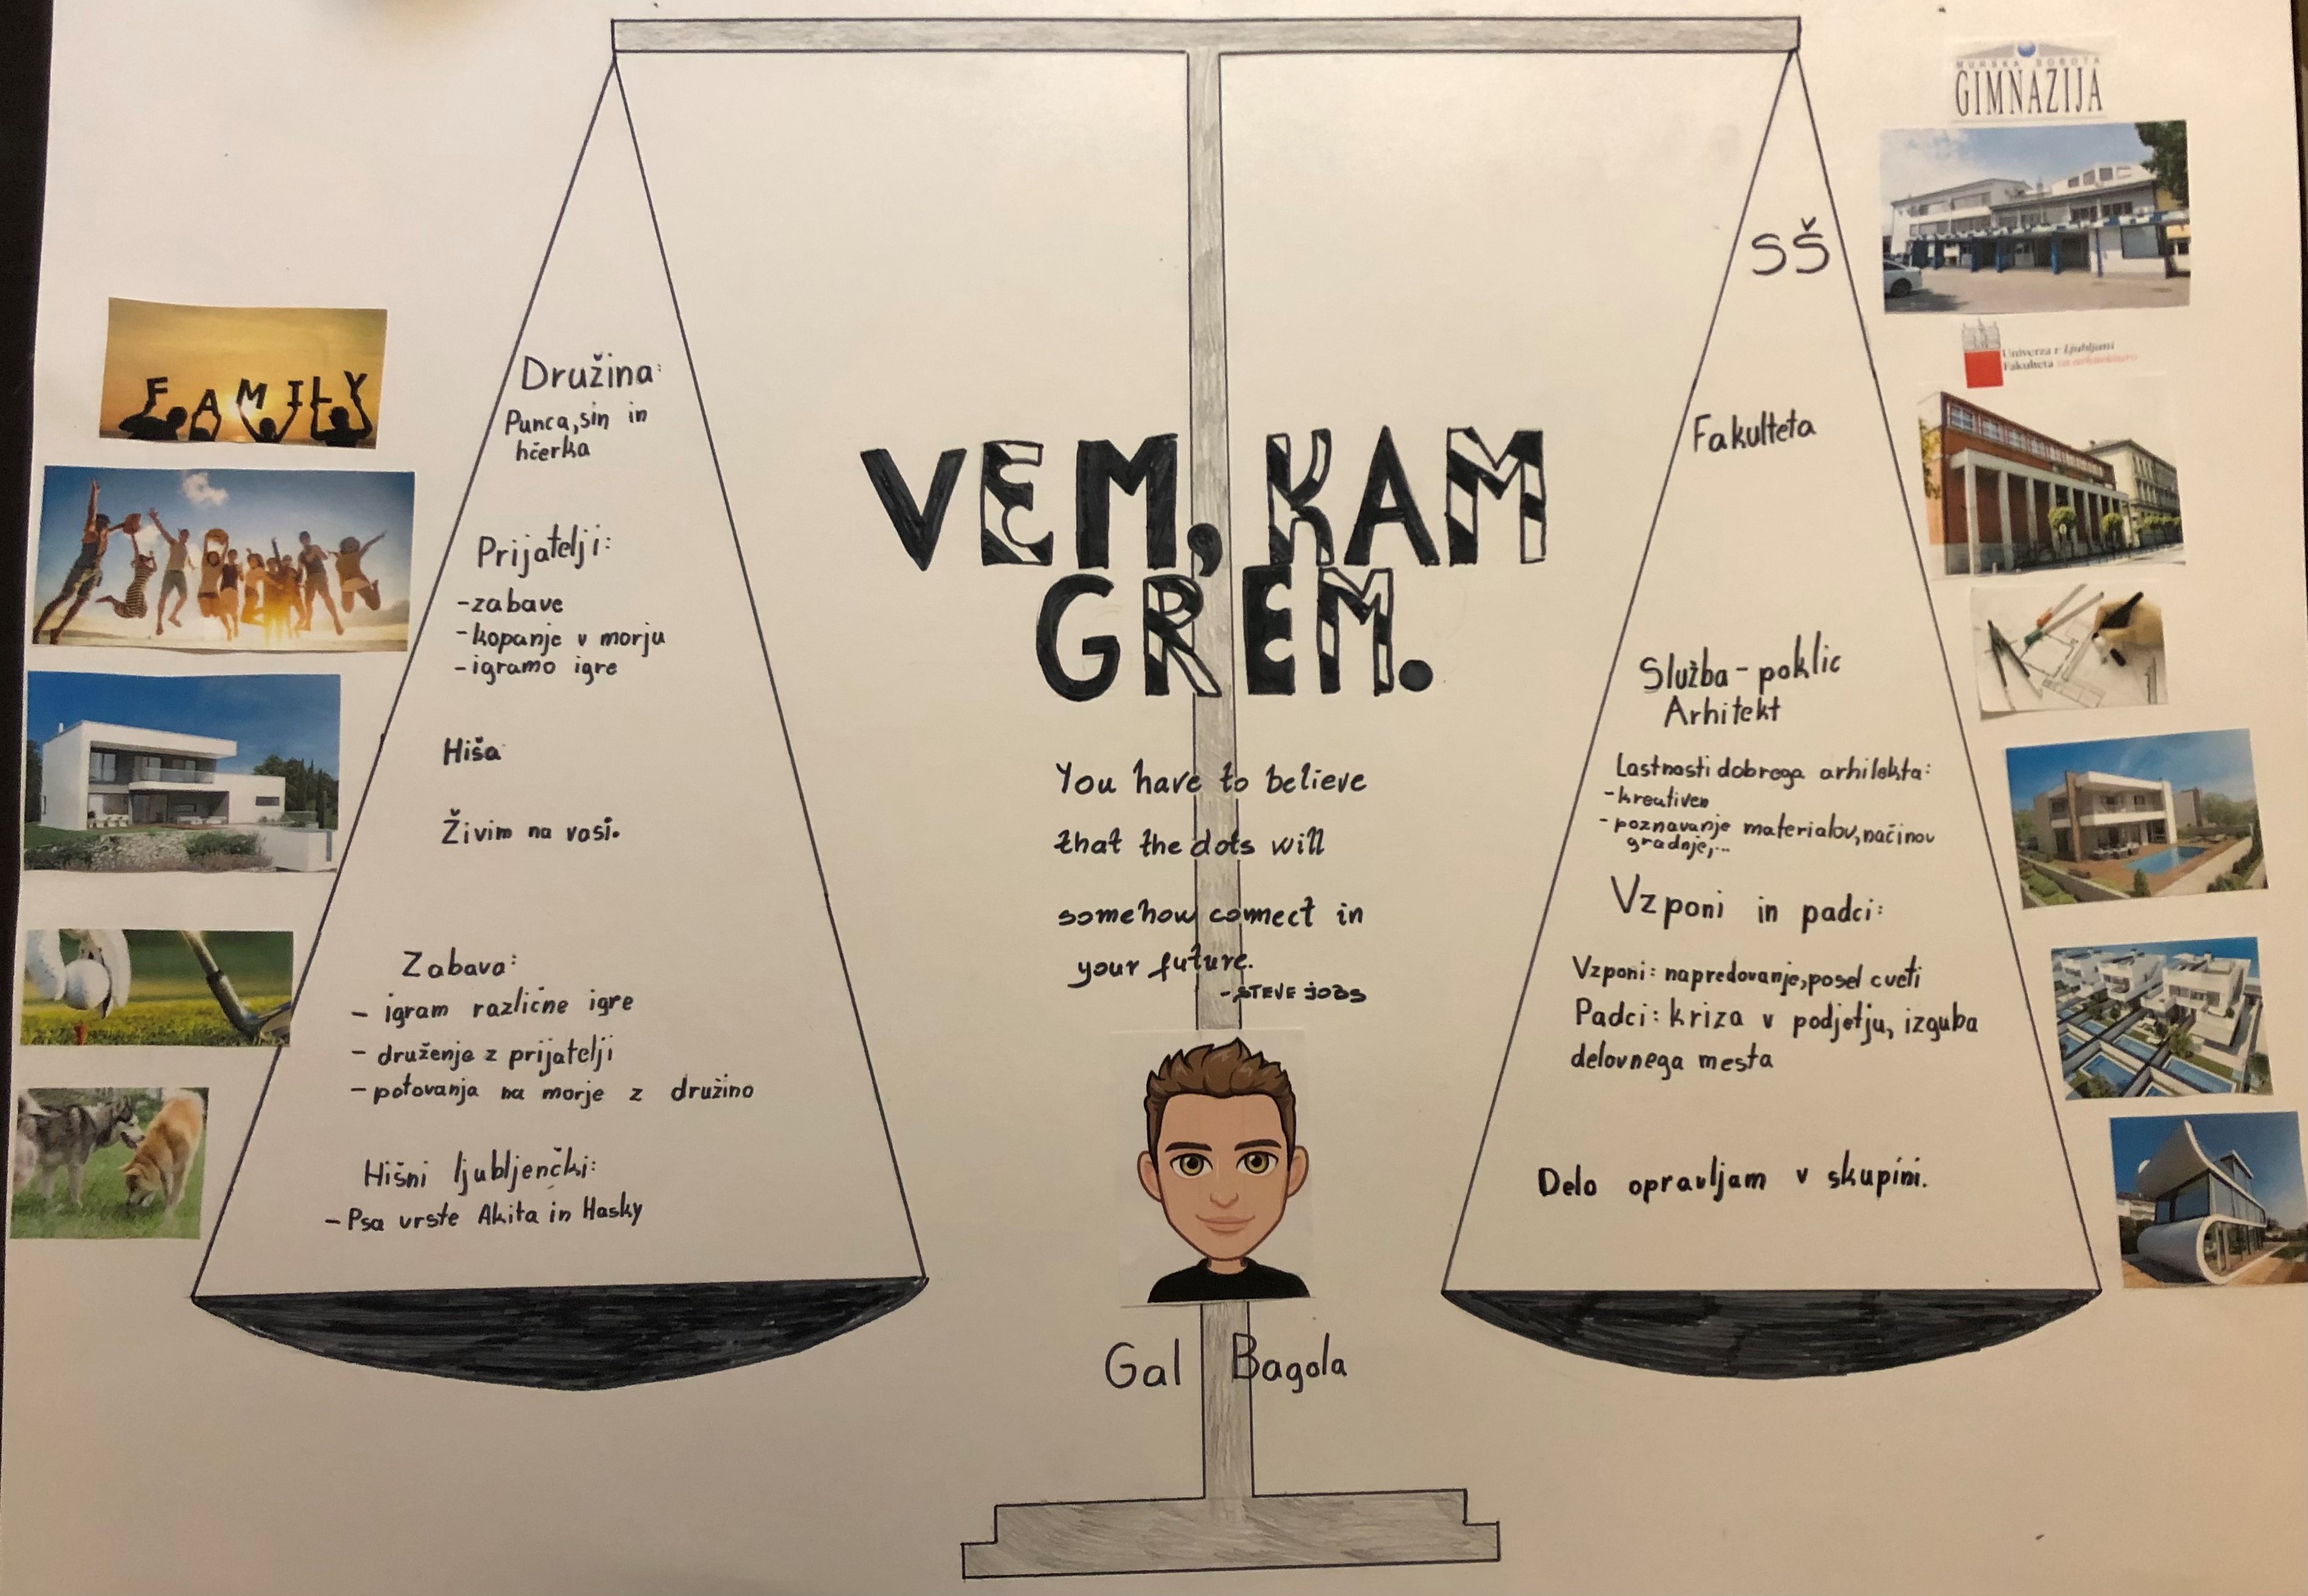 FAMILY
Družina:
Punca, sin in
hčerka
Prijatelji:
-zabave
-kopanje v morju
-igramo igre
Hiša
Živim na vasi.
Zabava:
- igram različne igre
- druženje z prijatelji
- potovanja na morje z družino
Hišni ljubljenčki:
- Psa vrste Akita in Hasky
VEM, KAM
GREM.
You have to believe
that the dots will
somehow connect in
your future.
- STEVE JOBS
Gal Bagola
MURSKA SOBOTA
GIMNAZIJA
SŠ
Univerza v Ljubljani
Fakulteta za arhitekturo
Fakulteta
Služba - poklic
Arhitekt
Lastnosti dobrega arhitekta:
-kreativen
-poznavanje materialov, načinov
gradnje,...
Vzponi in padci:
Vzponi: napredovanje, posel cveti
Padci: kriza v podjetju, izguba
delovnega mesta
Delo opravljam v skupini.